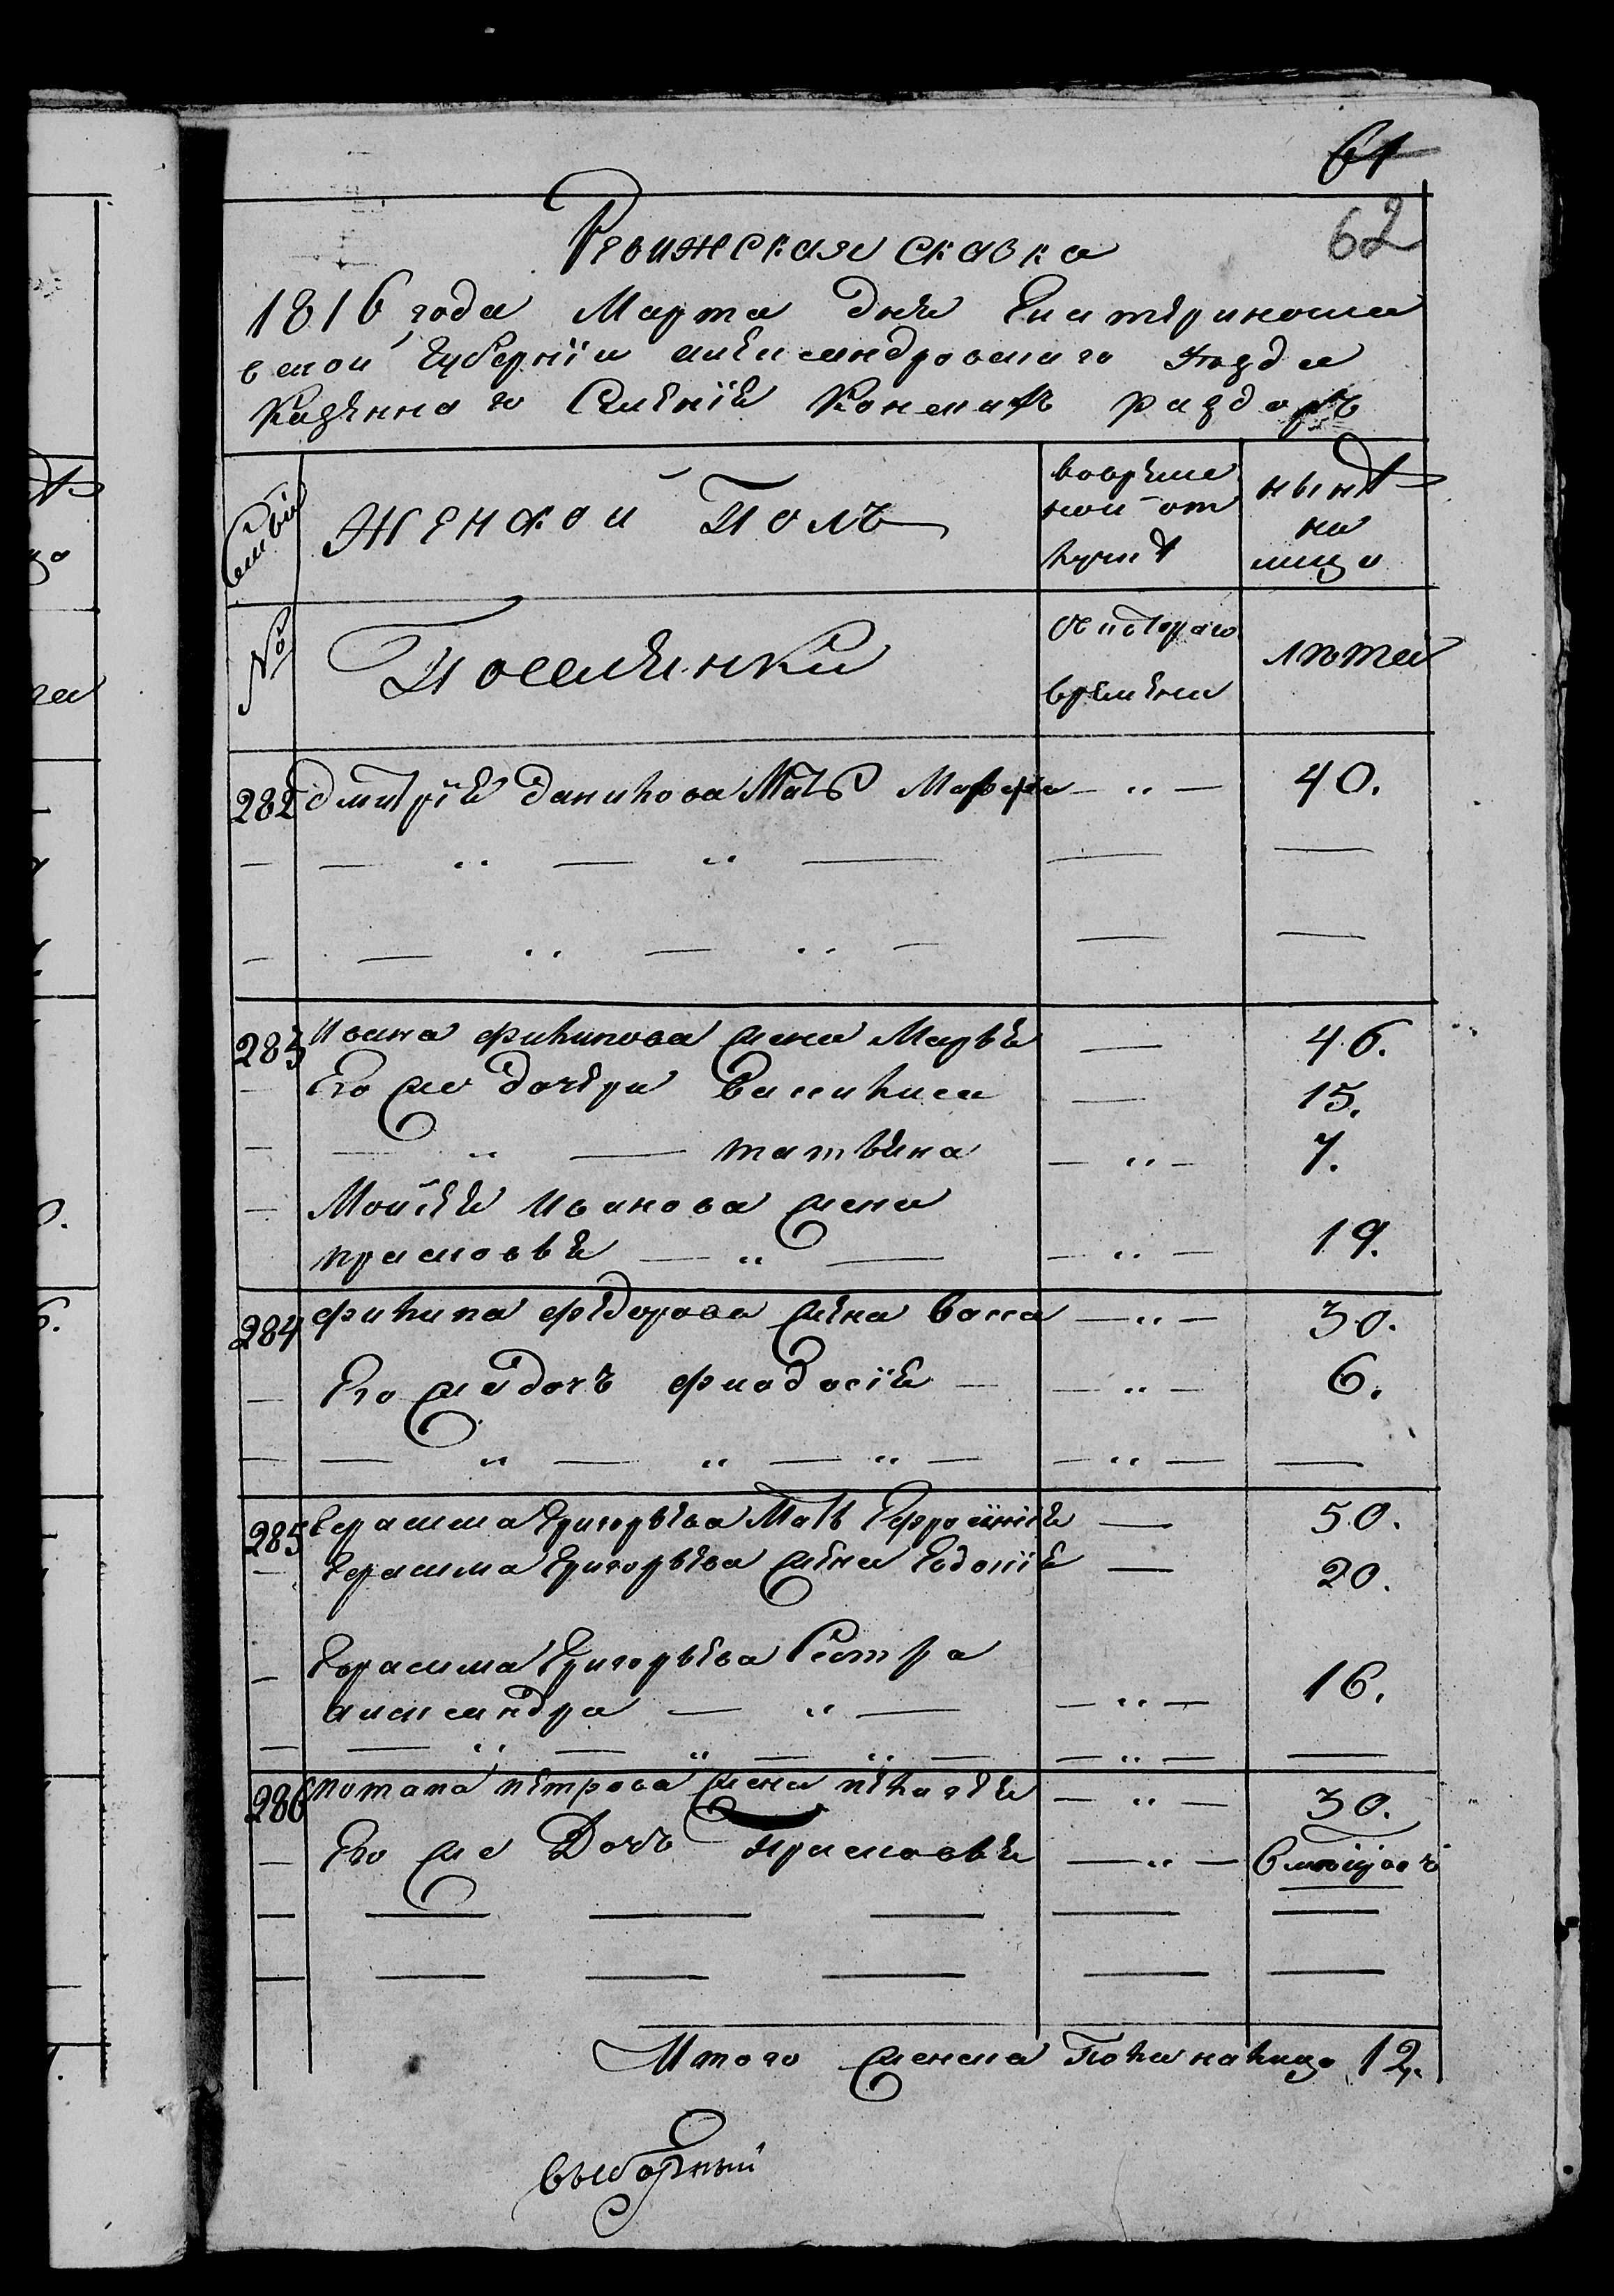 61
62
Ревижская сказка
1816 года Марта дня Екатериносла
вской Губерніи александровскаго уѣзда
Казенного Селенія Конскихъ раздоръ
семьи
женской Полъ
вовреме
ной от
лучкѣ
нынѣ
на
лицо
№
Поселянки
съ котораго
времени
лѣта
282 дмитрія данилова Мать Марфа — „ — 40.
— — „ — „ — — —
— — „ — „ — — —
283 Ивана филипова жена Марья — 46.
— Его же дочери Василиса — 15.
— — „ — татьяна — „ — 7.
— Мойсея Иванова жена
прасковья — „ — — „ — 19.
284 филипа федорова жена васса — „ — 30.
— Его же дочь фиодосія — — „ — 6.
— — „ — „ — „ — — „ — —
285 Герасима Григорьева Мать Ефросинія — 50.
— Герасима Григорьева жена Евдокія — 20.
— Герасима Григорьева Сестра
александра — „ — — „ — 16.
— — „ — „ — „ — — „ — —
286 потапа петрова жена пелагея — „ — 30.
— Его же Дочь прасковья — „ — 6 месяцовъ
— — — — — —
— — — — — —
Итого женска Пола налицо 12.
выборный